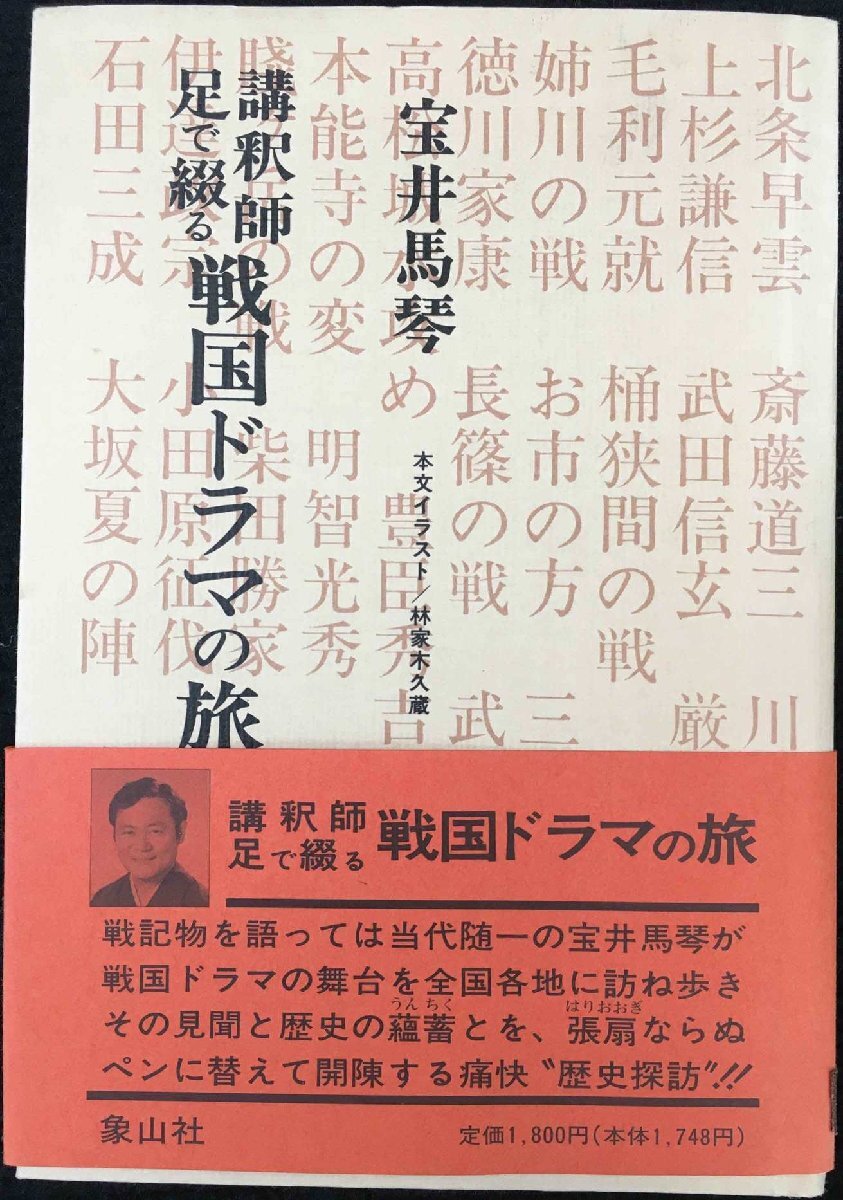 北条早雲 斎藤道三 川
上杉謙信 武田信玄 厳
毛利元就 桶狭間の戦
姉川の戦 お市の方 三
徳川家康 長篠の戦 武
高松城水攻め 豊臣秀吉
本能寺の変 明智光秀
の戦 柴田勝家
伊達政宗 小田原征伐
石田三成 大坂夏の陣
宝井馬琴
本文イラスト/林家木久蔵
講釈師
足で綴る
戦国ドラマの旅
講釈師
足で綴る
戦国ドラマの旅
戦記物を語っては当代随一の宝井馬琴が
戦国ドラマの舞台を全国各地に訪ね歩き
うんちく はりおおぎ
その見聞と歴史の蘊蓄とを、張扇ならぬ
ペンに替えて開陳する痛快〝歴史探訪〟!!
象山社 定価1,800円(本体1,748円)